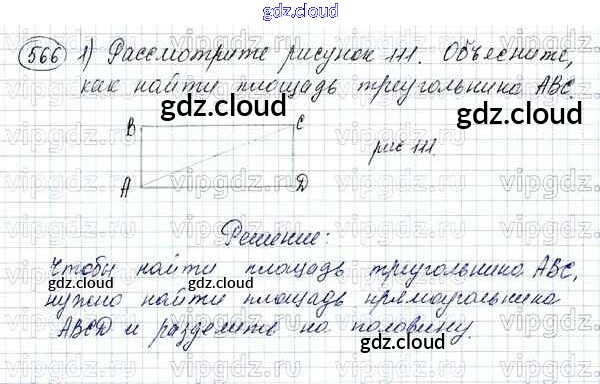 gdz.cloud
566 1) Рассмотрите рисунок 111. Объясните,
как найти площадь треугольника ABC.
gdz.cloud gdz.cloud
B C
рис 111.
A D
Решение:
Чтобы найти площадь треугольника ABC,
gdz.cloud gdz.cloud
нужно найти площадь прямоугольника
ABCD и разделить на половину.
gdz.cloud
vipgdz.com